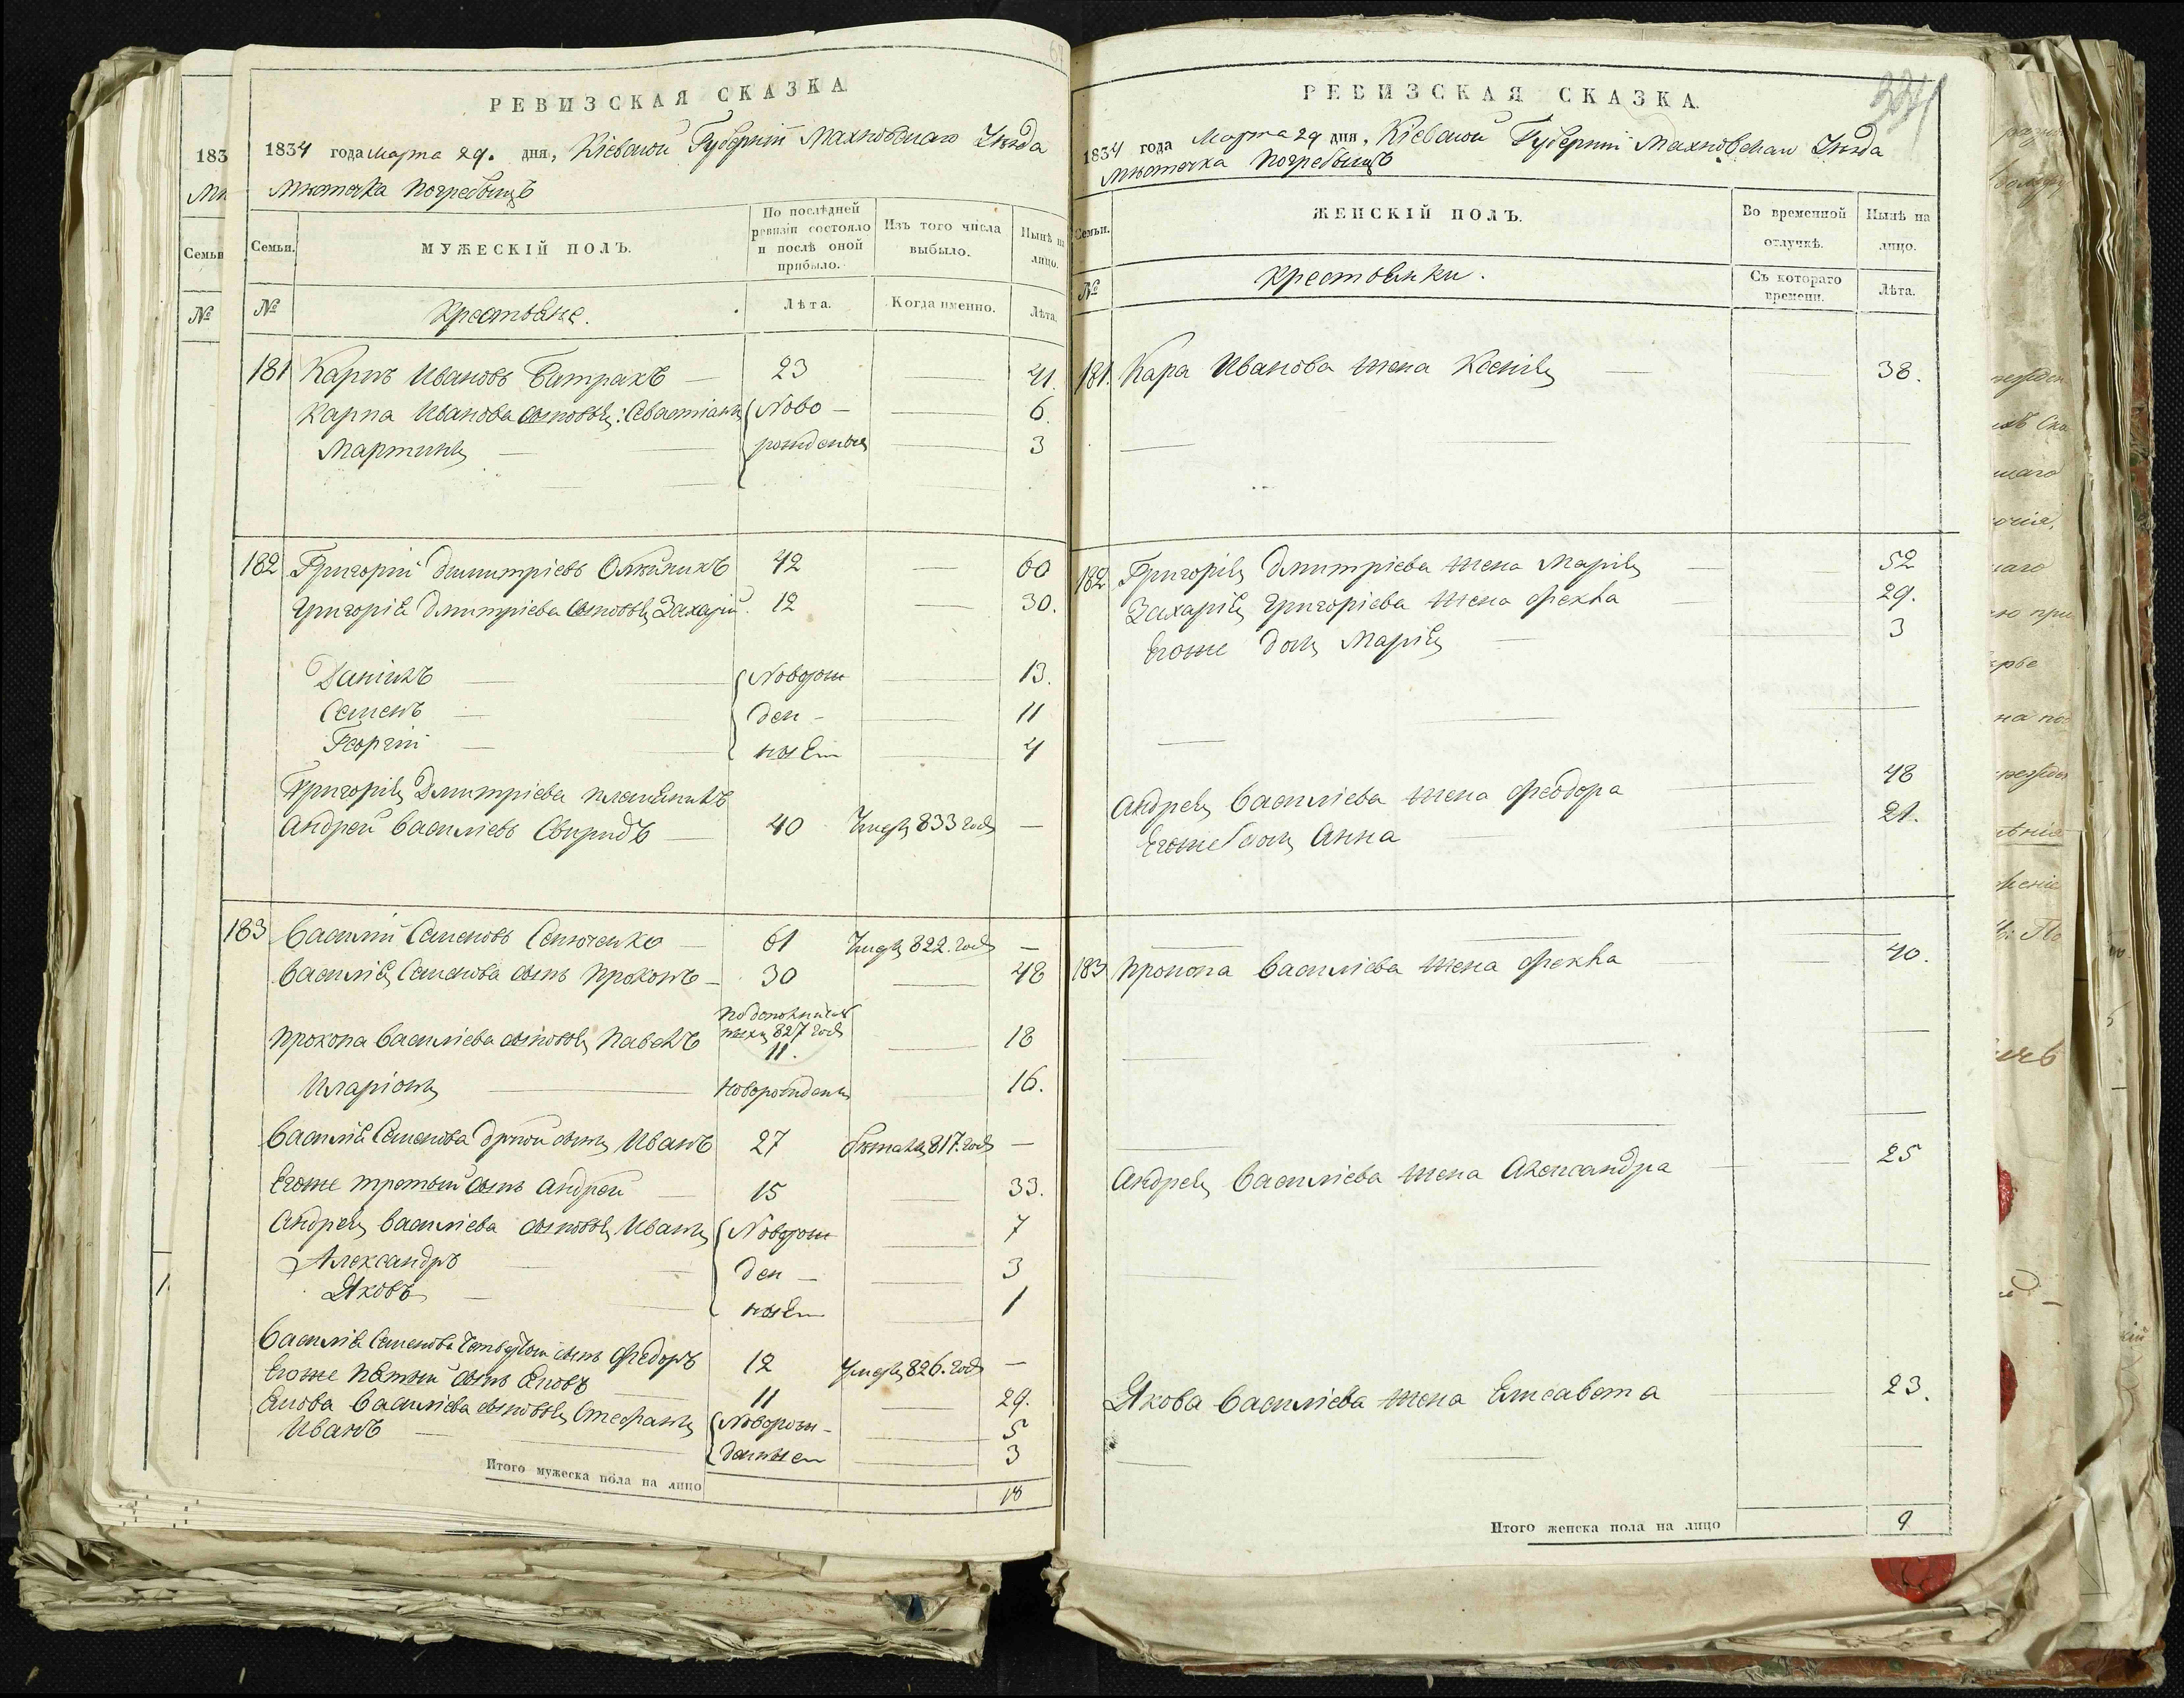 РЕВИЗСКАЯ СКАЗКА
1834 года марта 29. дня, Кіевской Губерніи Махновскаго Уѣзда
Мѣстечка Погребыщъ
Семьи.
МУЖЕСКІЙ ПОЛЪ.
По послѣдней ревизіи состояло и послѣ оной прибыло.
Изъ того числа выбыло.
Нынѣ на лицо.
№
Крестьяне.
Лѣта.
Когда именно.
Лѣта.
181 Карпъ Ивановъ Батрахъ 23 41.
Карпа Иванова сыновья: Севастіанъ Ново- 6.
Мартинъ рожденыя 3
182 Григорій Димитріевъ Олѣйникъ 42 60
Григорія Дмитріева сыновья Захарій 12 30.
Даніилъ Новорож 13.
Семенъ ден- 11
Георгій ныѣ 4
Григорія Дмитріева племяникъ
Андрей Василіевъ Свиридъ 40 Умеръ 833 года
183 Василій Семеновъ Сенюченко 61 Умеръ 822. года
Василія Семенова сынъ Прокопъ 30 48
Прокопа Василіева сыновья Павелъ 827 года 11. 18
Иларіонъ новорожденъ 16.
Василія Семенова другой сынъ Иванъ 27 бѣжалъ 817. года
Егоже третьый сынъ Андрей 15 33.
Андрея Василіева сыновья Иванъ Новорож 7
Александръ ден- 3
Яковъ ныѣ 1
Василія Семенова четвертой сынъ Федоръ 12 Умеръ 826. года
Егоже пятый сынъ Яковъ 11 29.
Якова Василіева сыновья Стефанъ Новорож- 5
Иванъ 3
Итого мужеска пола на лицо 18
РЕВИЗСКАЯ СКАЗКА.
334
1834 года Марта 29 дня, Кіевской Губерніи Махновскаго Уѣзда
Мѣстечка Погребыщъ
Семьи.
ЖЕНСКІЙ ПОЛЪ.
Во временной отлучкѣ.
Нынѣ на лицо.
№
Крестьянки.
Съ котораго времени.
Лѣта.
181. Кара Иванова жена Ксенія 38.
182 Григорія Дмитріева жена Марія 52
Захарія Григоріева жена Фекла 29.
Егоже дочь Марія 3
Андрея Василіева жена Феодора 48
Егоже дочь Анна 21.
183 Прокопа Василіева жена Фекла 40.
Андрея Василіева жена Александра 25
Якова Василіева жена Елисавета 23.
Итого женска пола на лицо 9